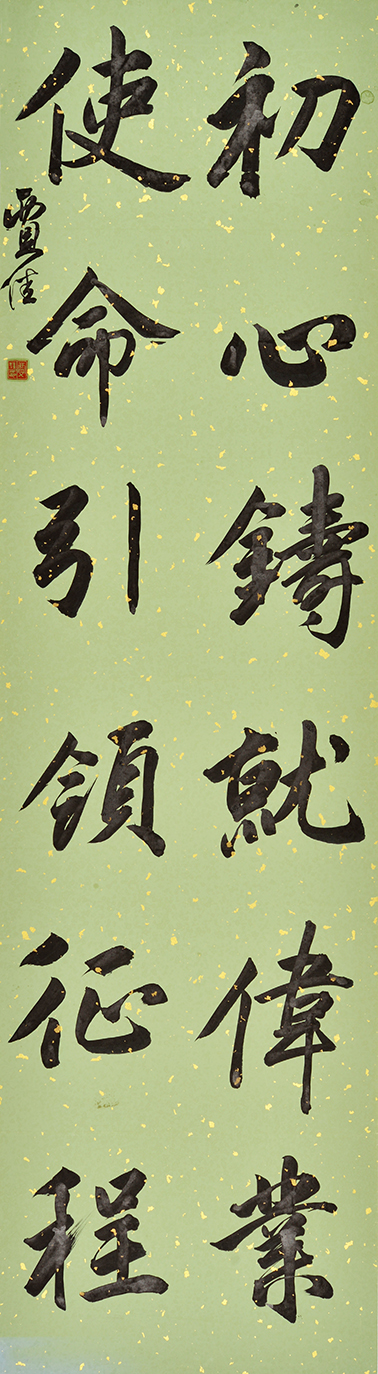 初心鑄就偉業
使命引領征程
賈佳